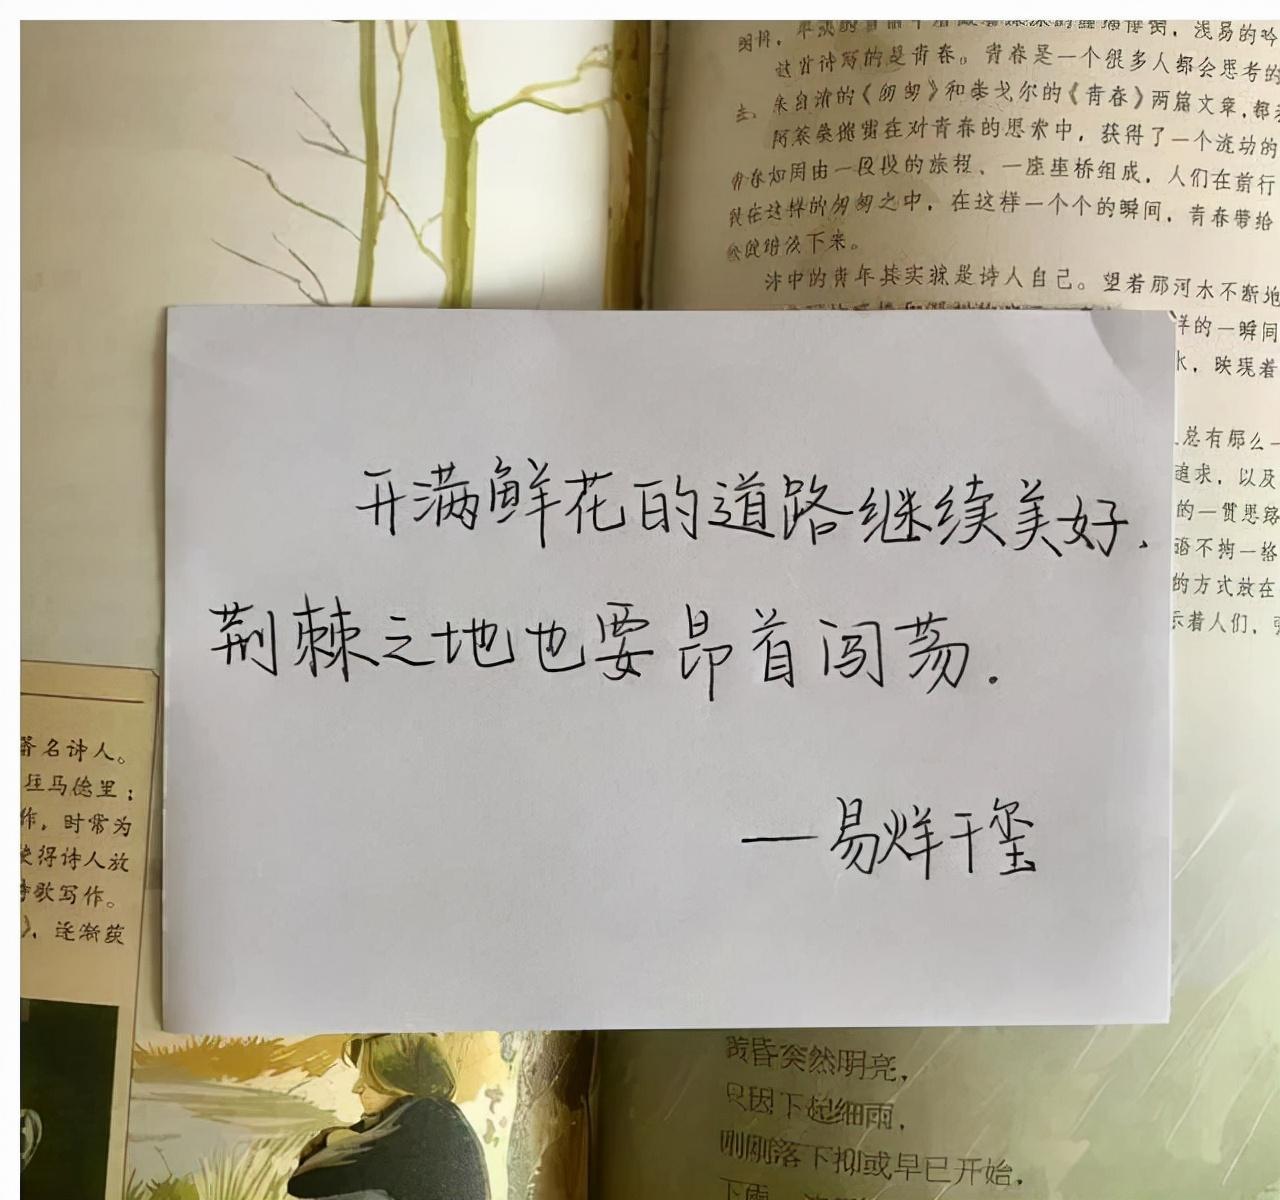 这首诗写的是青春。青春是一个很多人都会思考的
朱自清的《匆匆》和泰戈尔的《青春》两篇文章,都
在对青春的思索中，获得了一个流动的
由一段段的旅程、一座座桥组成，人们在前行
在这样的匆匆之中，在这样一个个的瞬间，青春带给
下来。
诗中的青年其实就是诗人自己。望着那河水不断地
样的一瞬间
水，映现着
总有那么一
追求，以及
的一贯思路
不拘一格
的方式放在
示着人们，
开满鲜花的道路继续美好,
荆棘之地也要昂首闯荡.
—易烊千玺
著名诗人。
马德里；
作，时常为
使得诗人放
诗歌写作。
》，逐渐获
黄昏突然明亮，
只因下起细雨，
刚刚落下抑或早已开始，